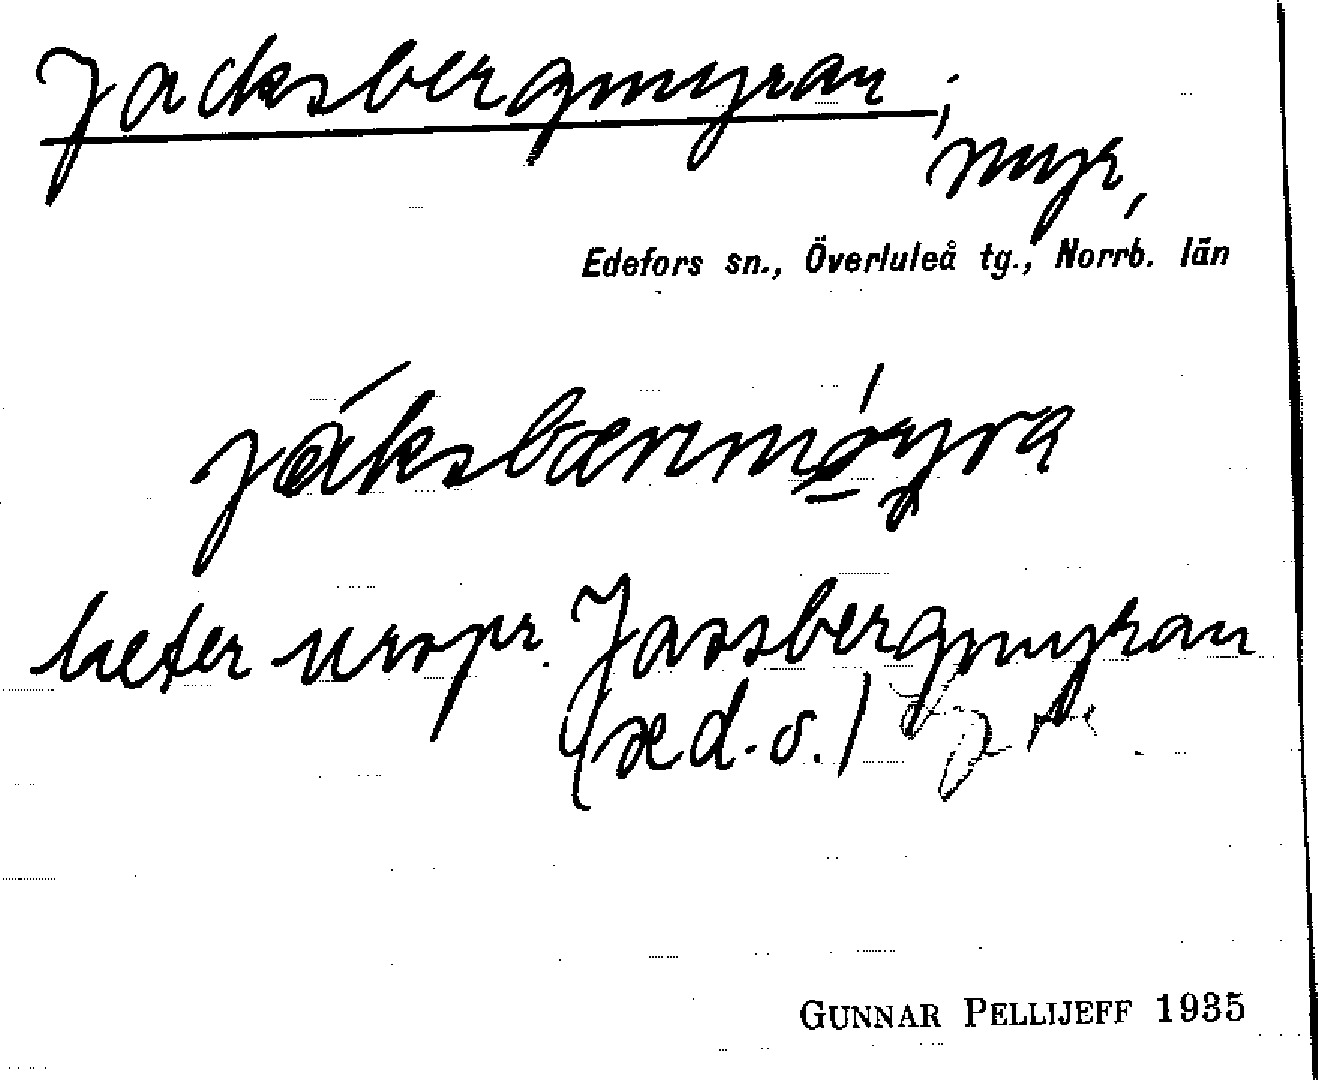 Jacksbergmyran;
myr,
Edefors sn., Överluleå tg., Norrb. län
jáksbærmǿyra
heter urspr. Jassbergmyran
(se d. o.)
GUNNAR PELLIJEFF 1935